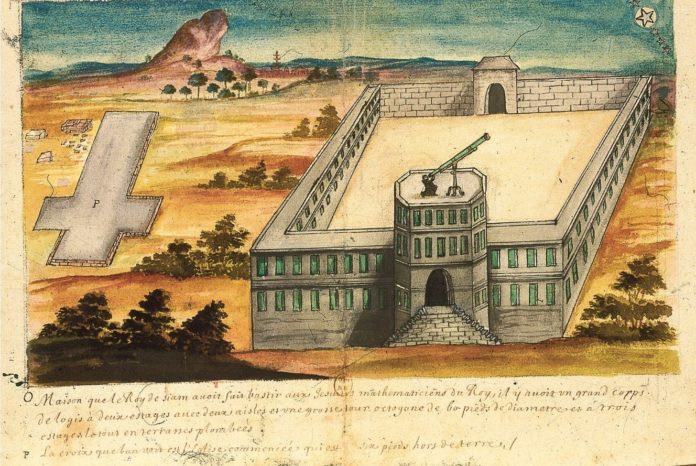 P
O Maison que le Roy de siam avoit fait bastir aux Jesuites mathematiciens du Roy, il y avoit un grand corps
de logis à deux estages avec deux aisles et une grosse tour octogone de 60 pieds de diametre et à trois
estages le tout en terrasses plombées
P La croix que l'an voit est l'église commencée qui est six pieds hors de terre